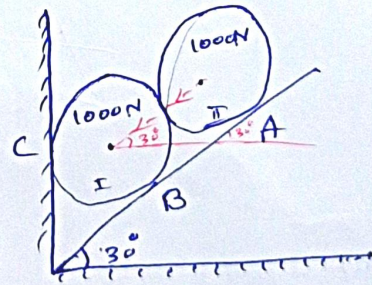 1000N
1000N
II
30°
30°
A
C
I
B
30°